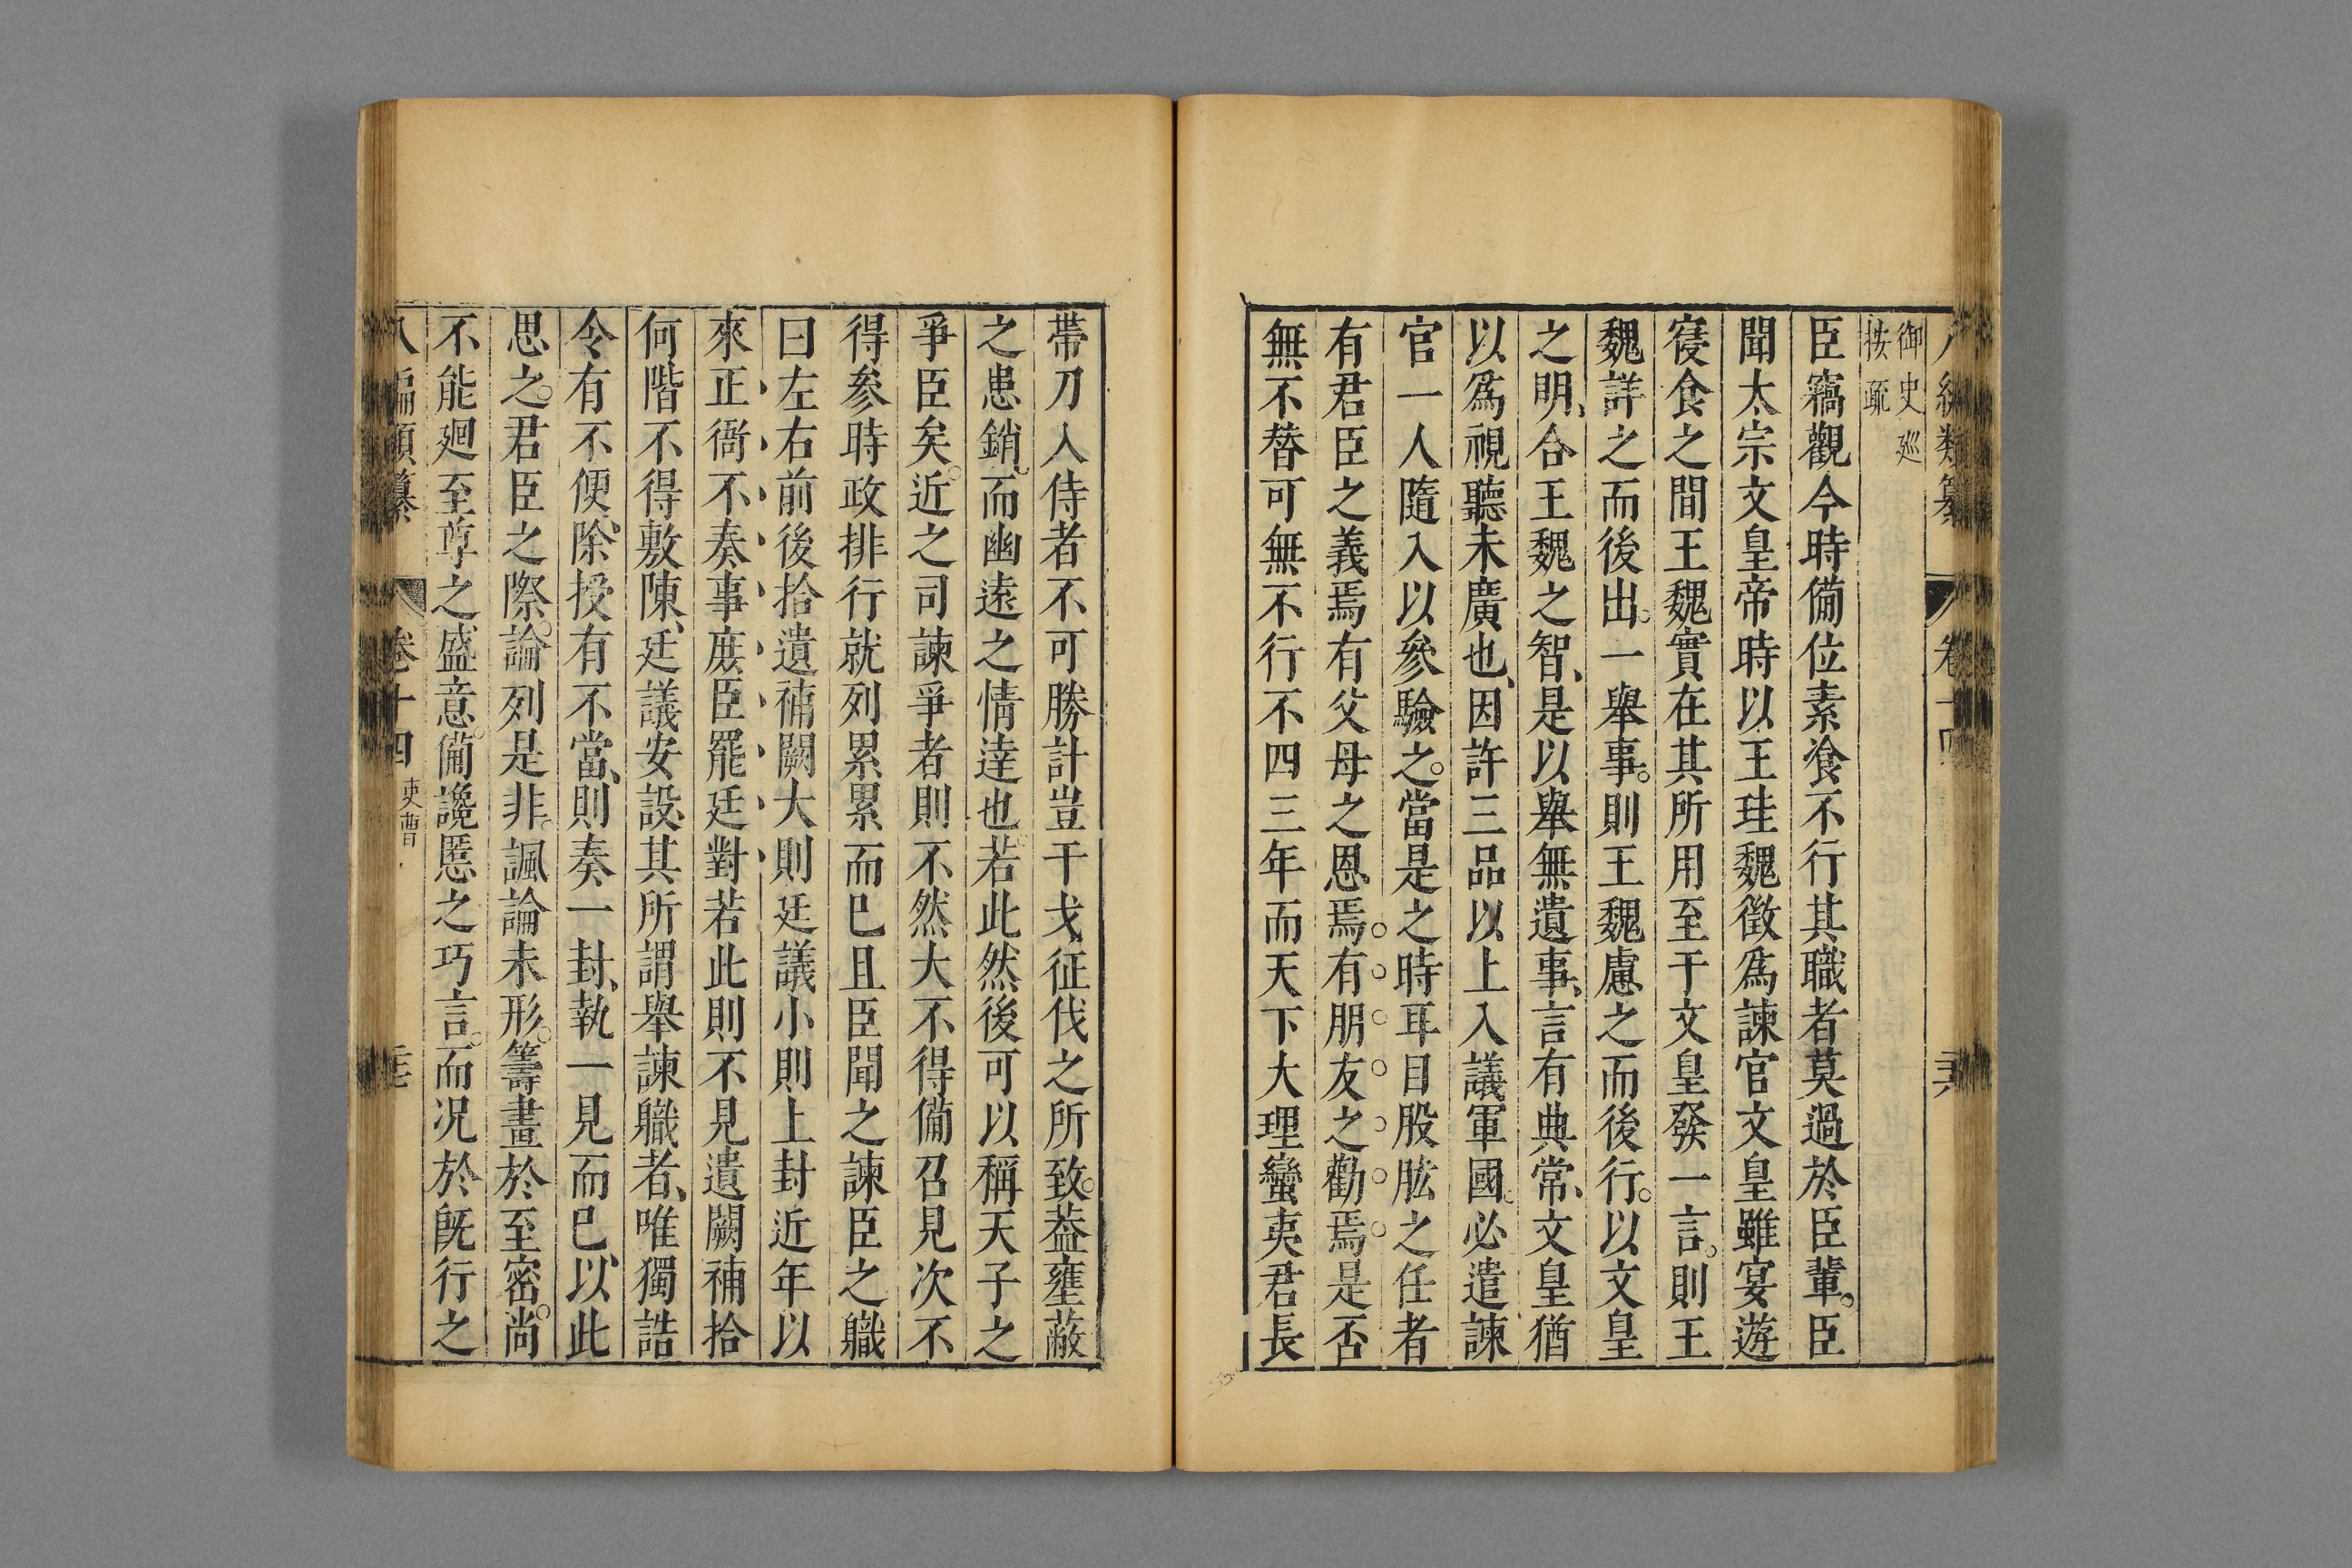 御史巡
按疏
臣竊觀今時備位素飡不行其職者莫過於臣輩。臣
聞太宗文皇帝時以王珪魏徵爲諫官文皇雖宴遊
寑食之間王魏實在其所用至于文皇發一言。則王
魏詳之而後出。一舉事。則王魏慮之而後行。以文皇
之明、合王魏之智、是以舉無遺事、言有典常、文皇猶
以爲視聽未廣也、因許三品以上入議軍國。必遣諫
官一人隨入以參驗之。當是之時耳目股肱之任者
有君臣之義焉有父母之恩焉有朋友之勸焉是否
無不替可無不行不四三年而天下大理蠻夷君長
帶刀入侍者不可勝計豈干戈征伐之所致。葢壅蔽
之患銷、而幽遠之情達也。若此然後可以稱天子之
爭臣矣。近之司諫爭者則不然大不得備召見次不
得參時政排行就列累累而已且臣聞之諫臣之職
曰左右前後拾遺補闕大則廷議小則上封近年以
來正衙不奏事庶臣罷廷對若此則不見遺闕補拾
何階不得敷陳、廷議安設其所謂舉諫職者、唯獨誥
令有不便、除授有不當、則奏一封、執一見而已、以此
思之。君臣之際。論列是非。諷論未形。籌畫於至密。尚
不能廻至尊之盛意。備讒慝之巧言。而况於既行之
編類纂 卷十四 吏曹